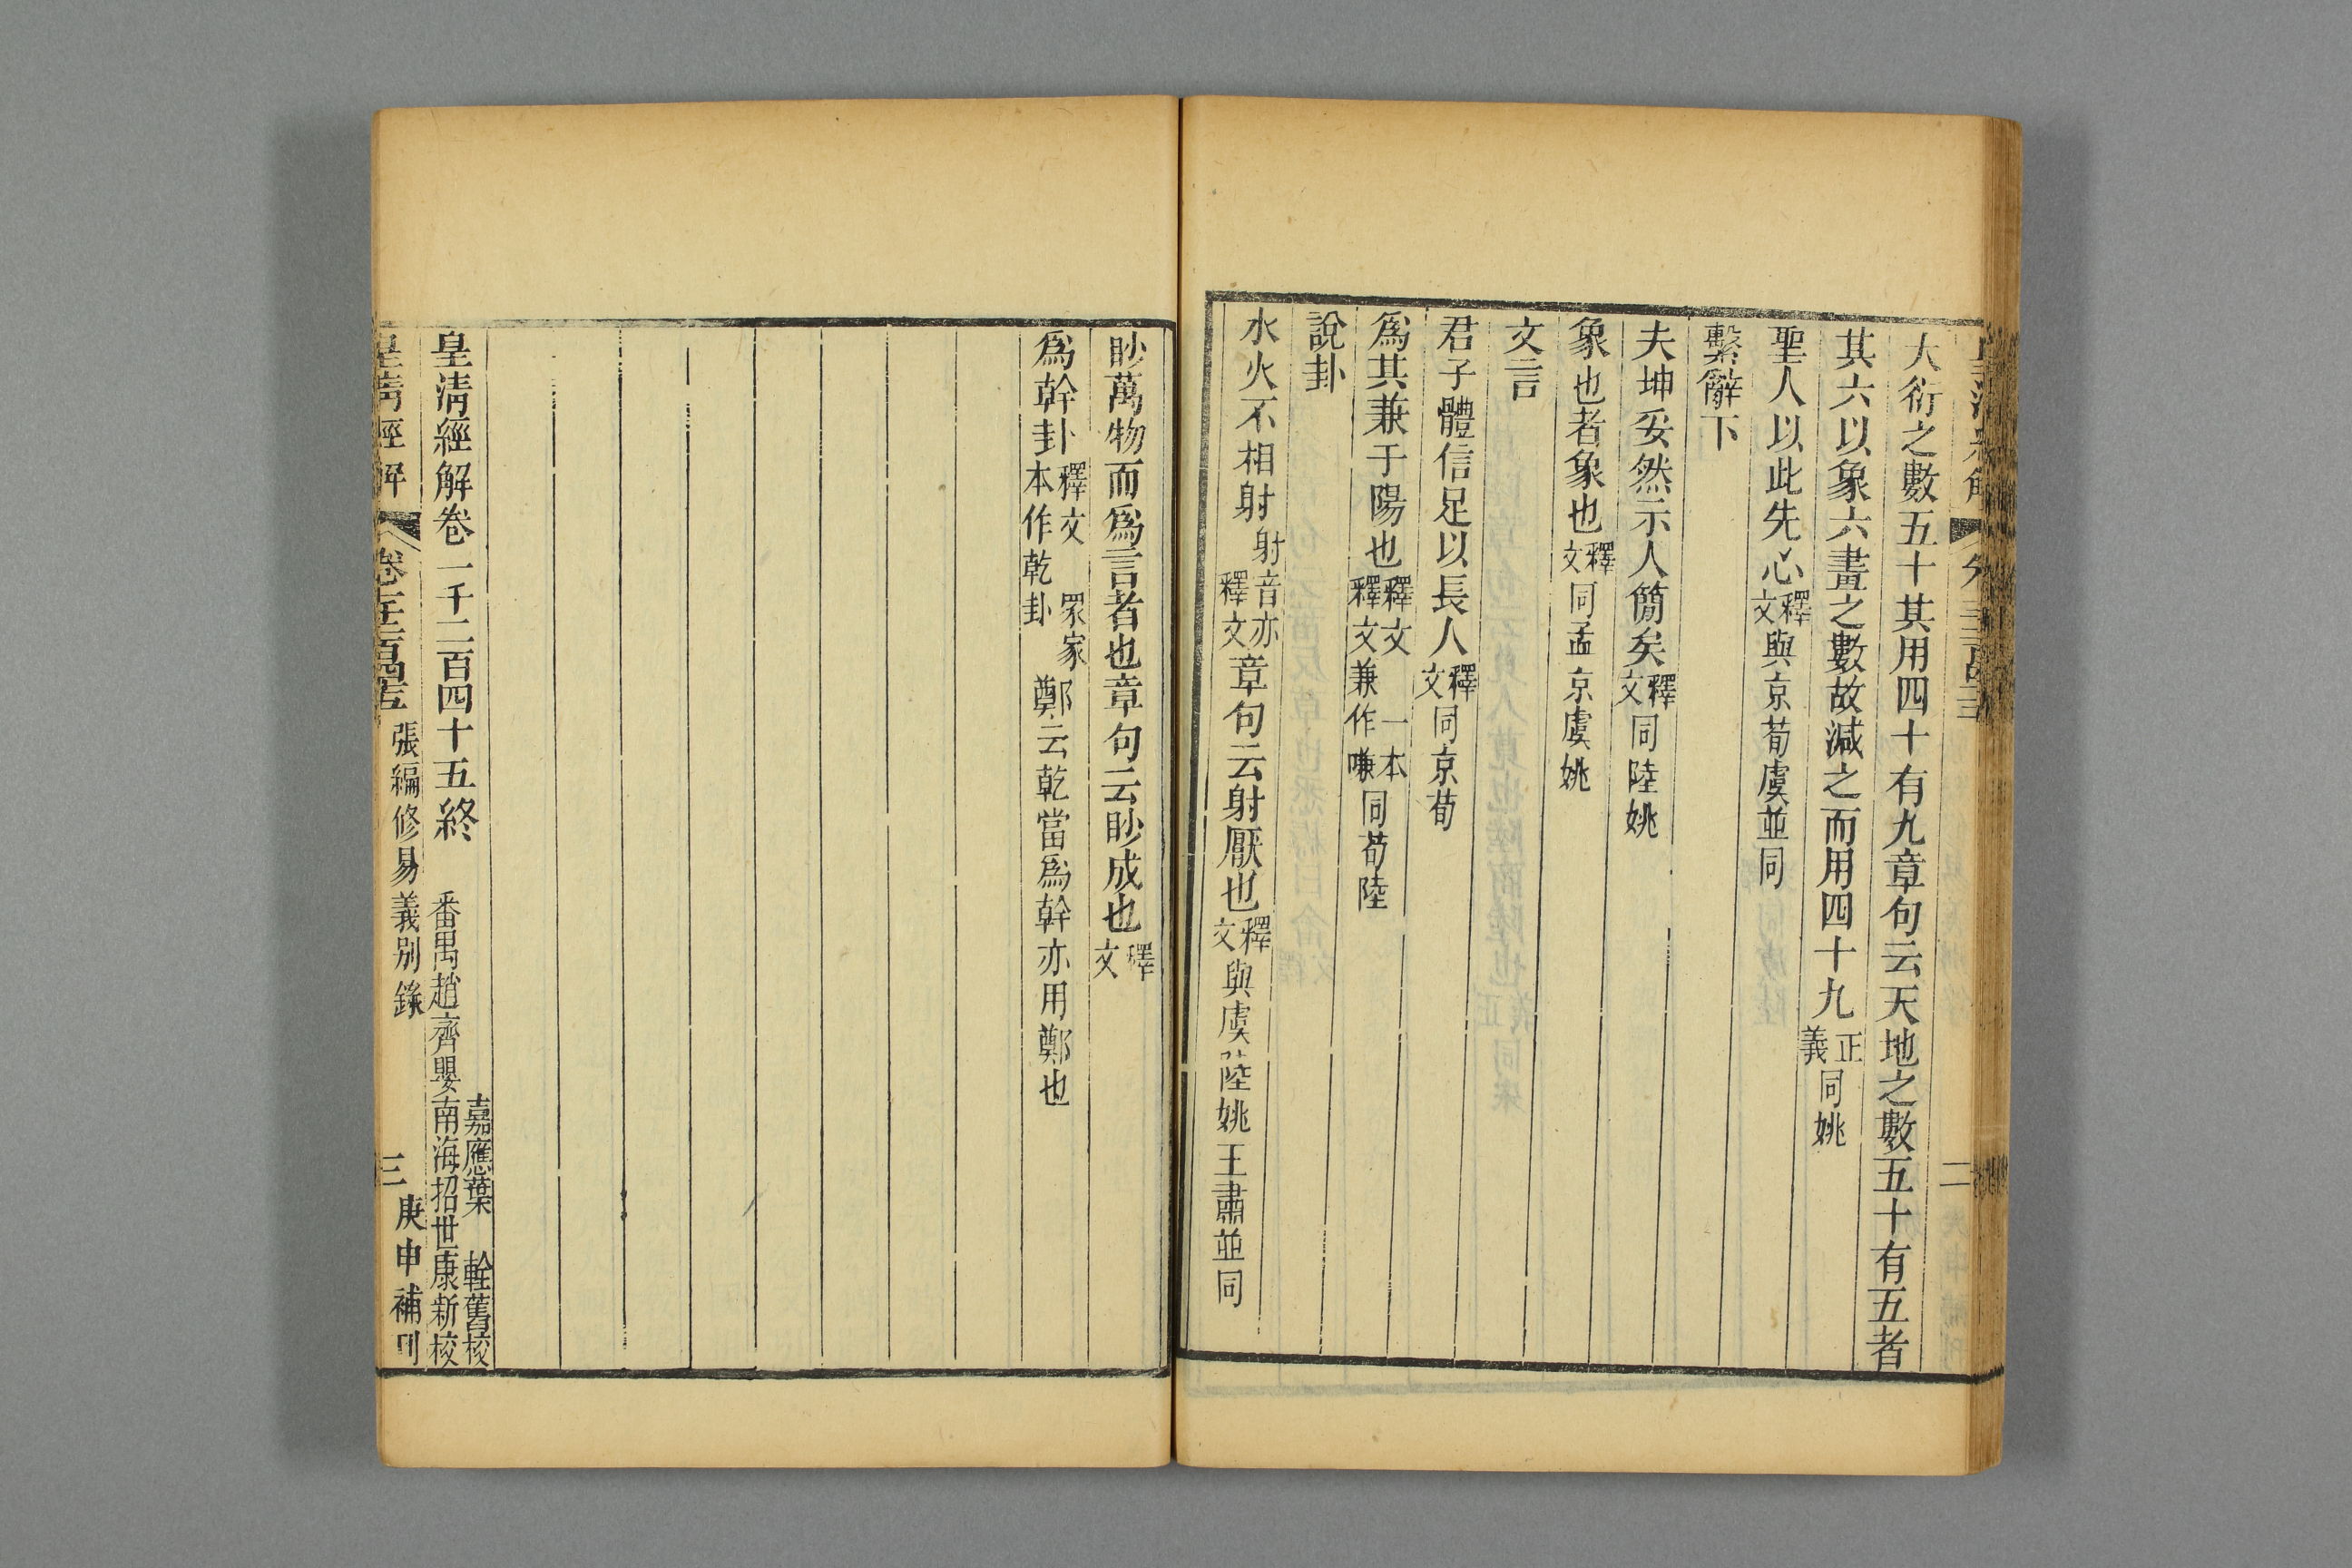 大衍之數五十其用四十有九章句云天地之數五十有五者
其六以象六畫之數故減之而用四十九正義同姚
聖人以此先心釋文與京荀虞並同
繫辭下
夫坤妥然示人簡矣釋文同陸姚
象也者象也釋文同孟京虞姚
文言
君子體信足以長人釋文同京荀
爲其兼于陽也釋文一本釋文兼作嗛同荀陸
說卦
水火不相射射音亦釋文章句云射厭也釋文與虞陸姚王肅並同
眇萬物而爲言者也章句云眇成也釋文
爲幹卦釋文眾家本作乾卦鄭云乾當爲幹亦用鄭也
皇清經解卷一千二百四十五終
嘉應葉輇舊校
番禺趙齊嬰南海招世康新校
皇清經解
張編修易義別錄
三
庚申補刊